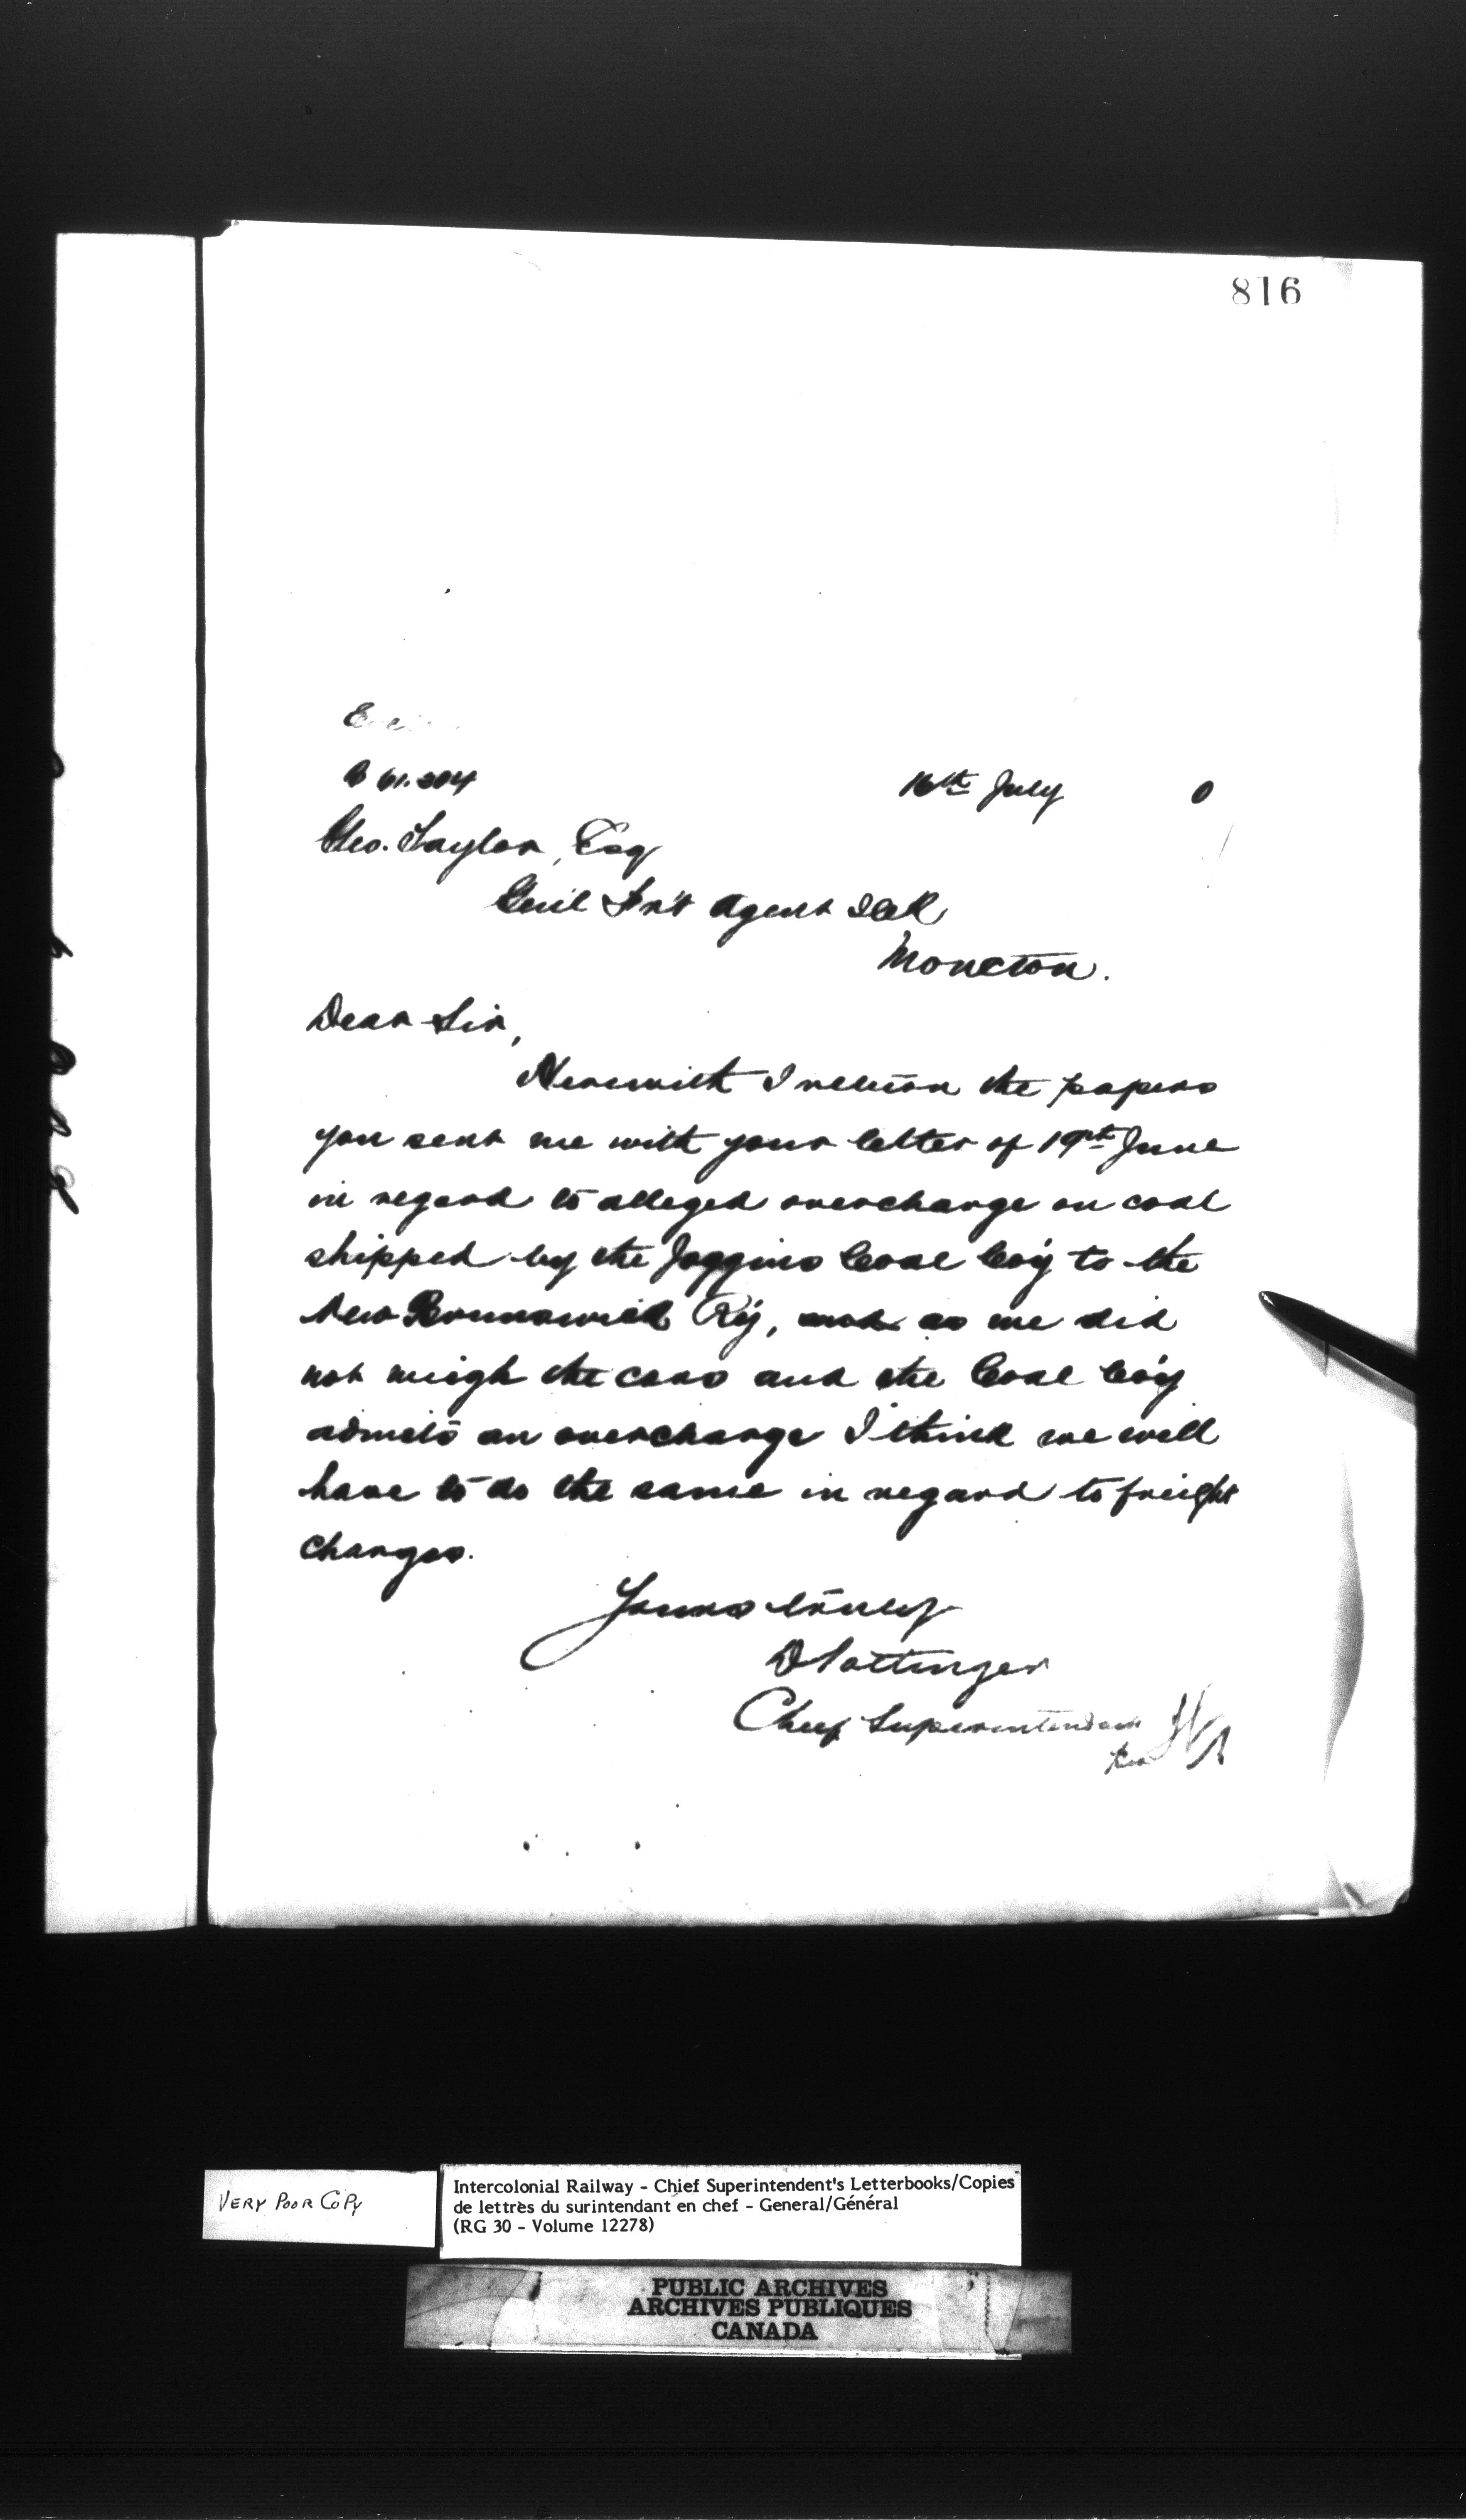 816
16th July 0
Geo. Taylor, Esq
Gen'l Fr't Agent ICR
Moncton.
Dear Sir,
Herewith I return the papers
you sent me with your letter of 19th June
in regard to alleged overcharge on coal
shipped by the Joggins Coal Co'y to the
New Brunswick Ry, and as we did
not weigh the cars and the Coal Co'y
admits an overcharge I think we will
have to do the same in regard to freight
charges.
Yours truly
D Pottinger
Chief Superintendent
Per
VERY POOR COPY
Intercolonial Railway - Chief Superintendent's Letterbooks/Copies
de lettres du surintendant en chef - General/Général
(RG 30 - Volume 12278)
PUBLIC ARCHIVES
ARCHIVES PUBLIQUES
CANADA